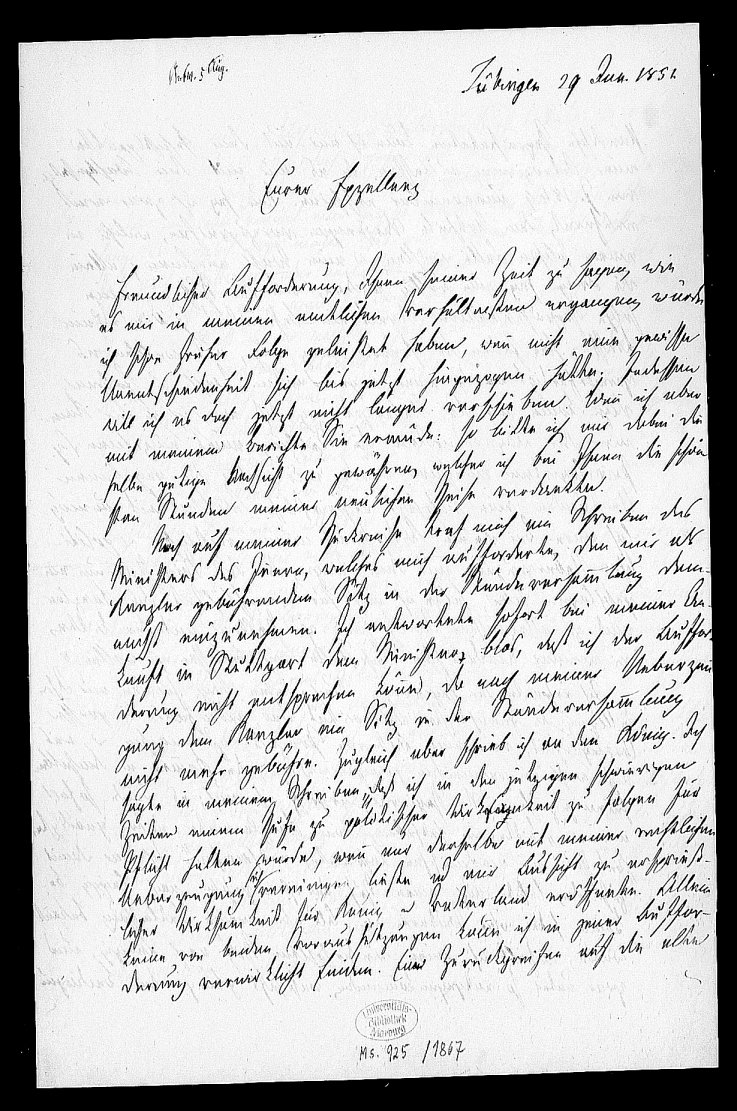 Antw. 5 Aug.
Tübingen 29 Jun. 1851
Eurer Exzellenz
freundlicher Aufforderung, Ihnen seiner Zeit zu sagen, wie
es mir in meinen amtlichen Verhältnissen ergangen, würde
ich schon früher Folge geleistet haben, wenn nicht eine gewisse
Unentschiedenheit sich bis jetzt hingezogen hätte. Indessen
will ich es doch jetzt nicht länger verschieben. Wenn ich aber
mit meinem Berichte Sie ermüde: so bitte ich mir dabei die
selbe gütige Nachsicht zu gewähren, welcher ich bei Ihnen die schön
sten Stunden meiner neulichen Reise verdankte.
Noch auf meiner Rückreise traf mich ein Schreiben des
Ministers des Innern, welches mich aufforderte, den mir als
Kanzler gebührenden Sitz in der Ständeversammlung dem-
nächst einzunehmen. Ich antwortete sofort bei meiner An-
kunft in Stuttgart dem Minister blos, daß ich der Auffor-
derung nicht entsprechen könne, da nach meiner Ueberzeu
gung dem Kanzler ein Sitz in der Ständeversammlung
nicht mehr gebühre. Zugleich aber schrieb ich an den König. Ich
sagte in meinem Schreiben, daß ich in den jetzigen schwierigen
Zeiten einem Rufe zu politischer Wirksamkeit zu folgen für
Pflicht halten würde, wenn nur derselbe mit meiner rechtlichen
Ueberzeugung sich vereinigen ließe und mir Aussicht zu ersprieß-
licher Wirksamkeit für König u Vaterland eröffnete. Allein
keine von beiden Voraussetzungen kann ich in jener Auffor-
derung verwirklicht finden. Ein Zurückgreifen auf die alte
Universitäts-
Bibliothek
Marburg
Ms. 925 /1867